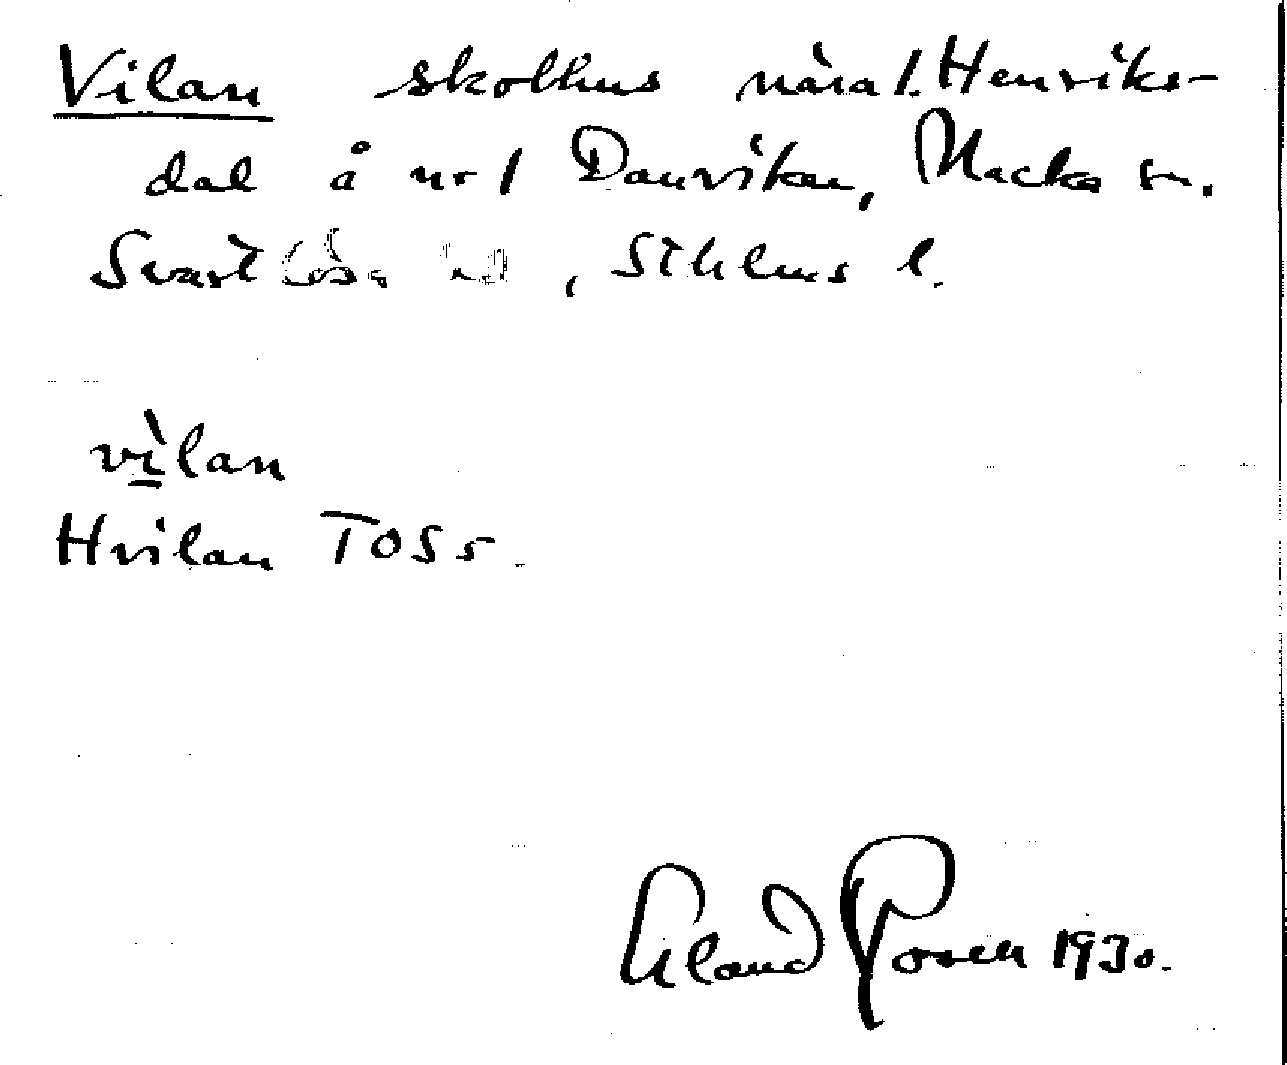 Vilan skolhus nära l. Henriks-
dal å nr 1 Danviken, Nacka sn.
Svartlösa hd, Sthlms l.
vìlan
Hvilan TOS 5.
Åland Rosén 1930.